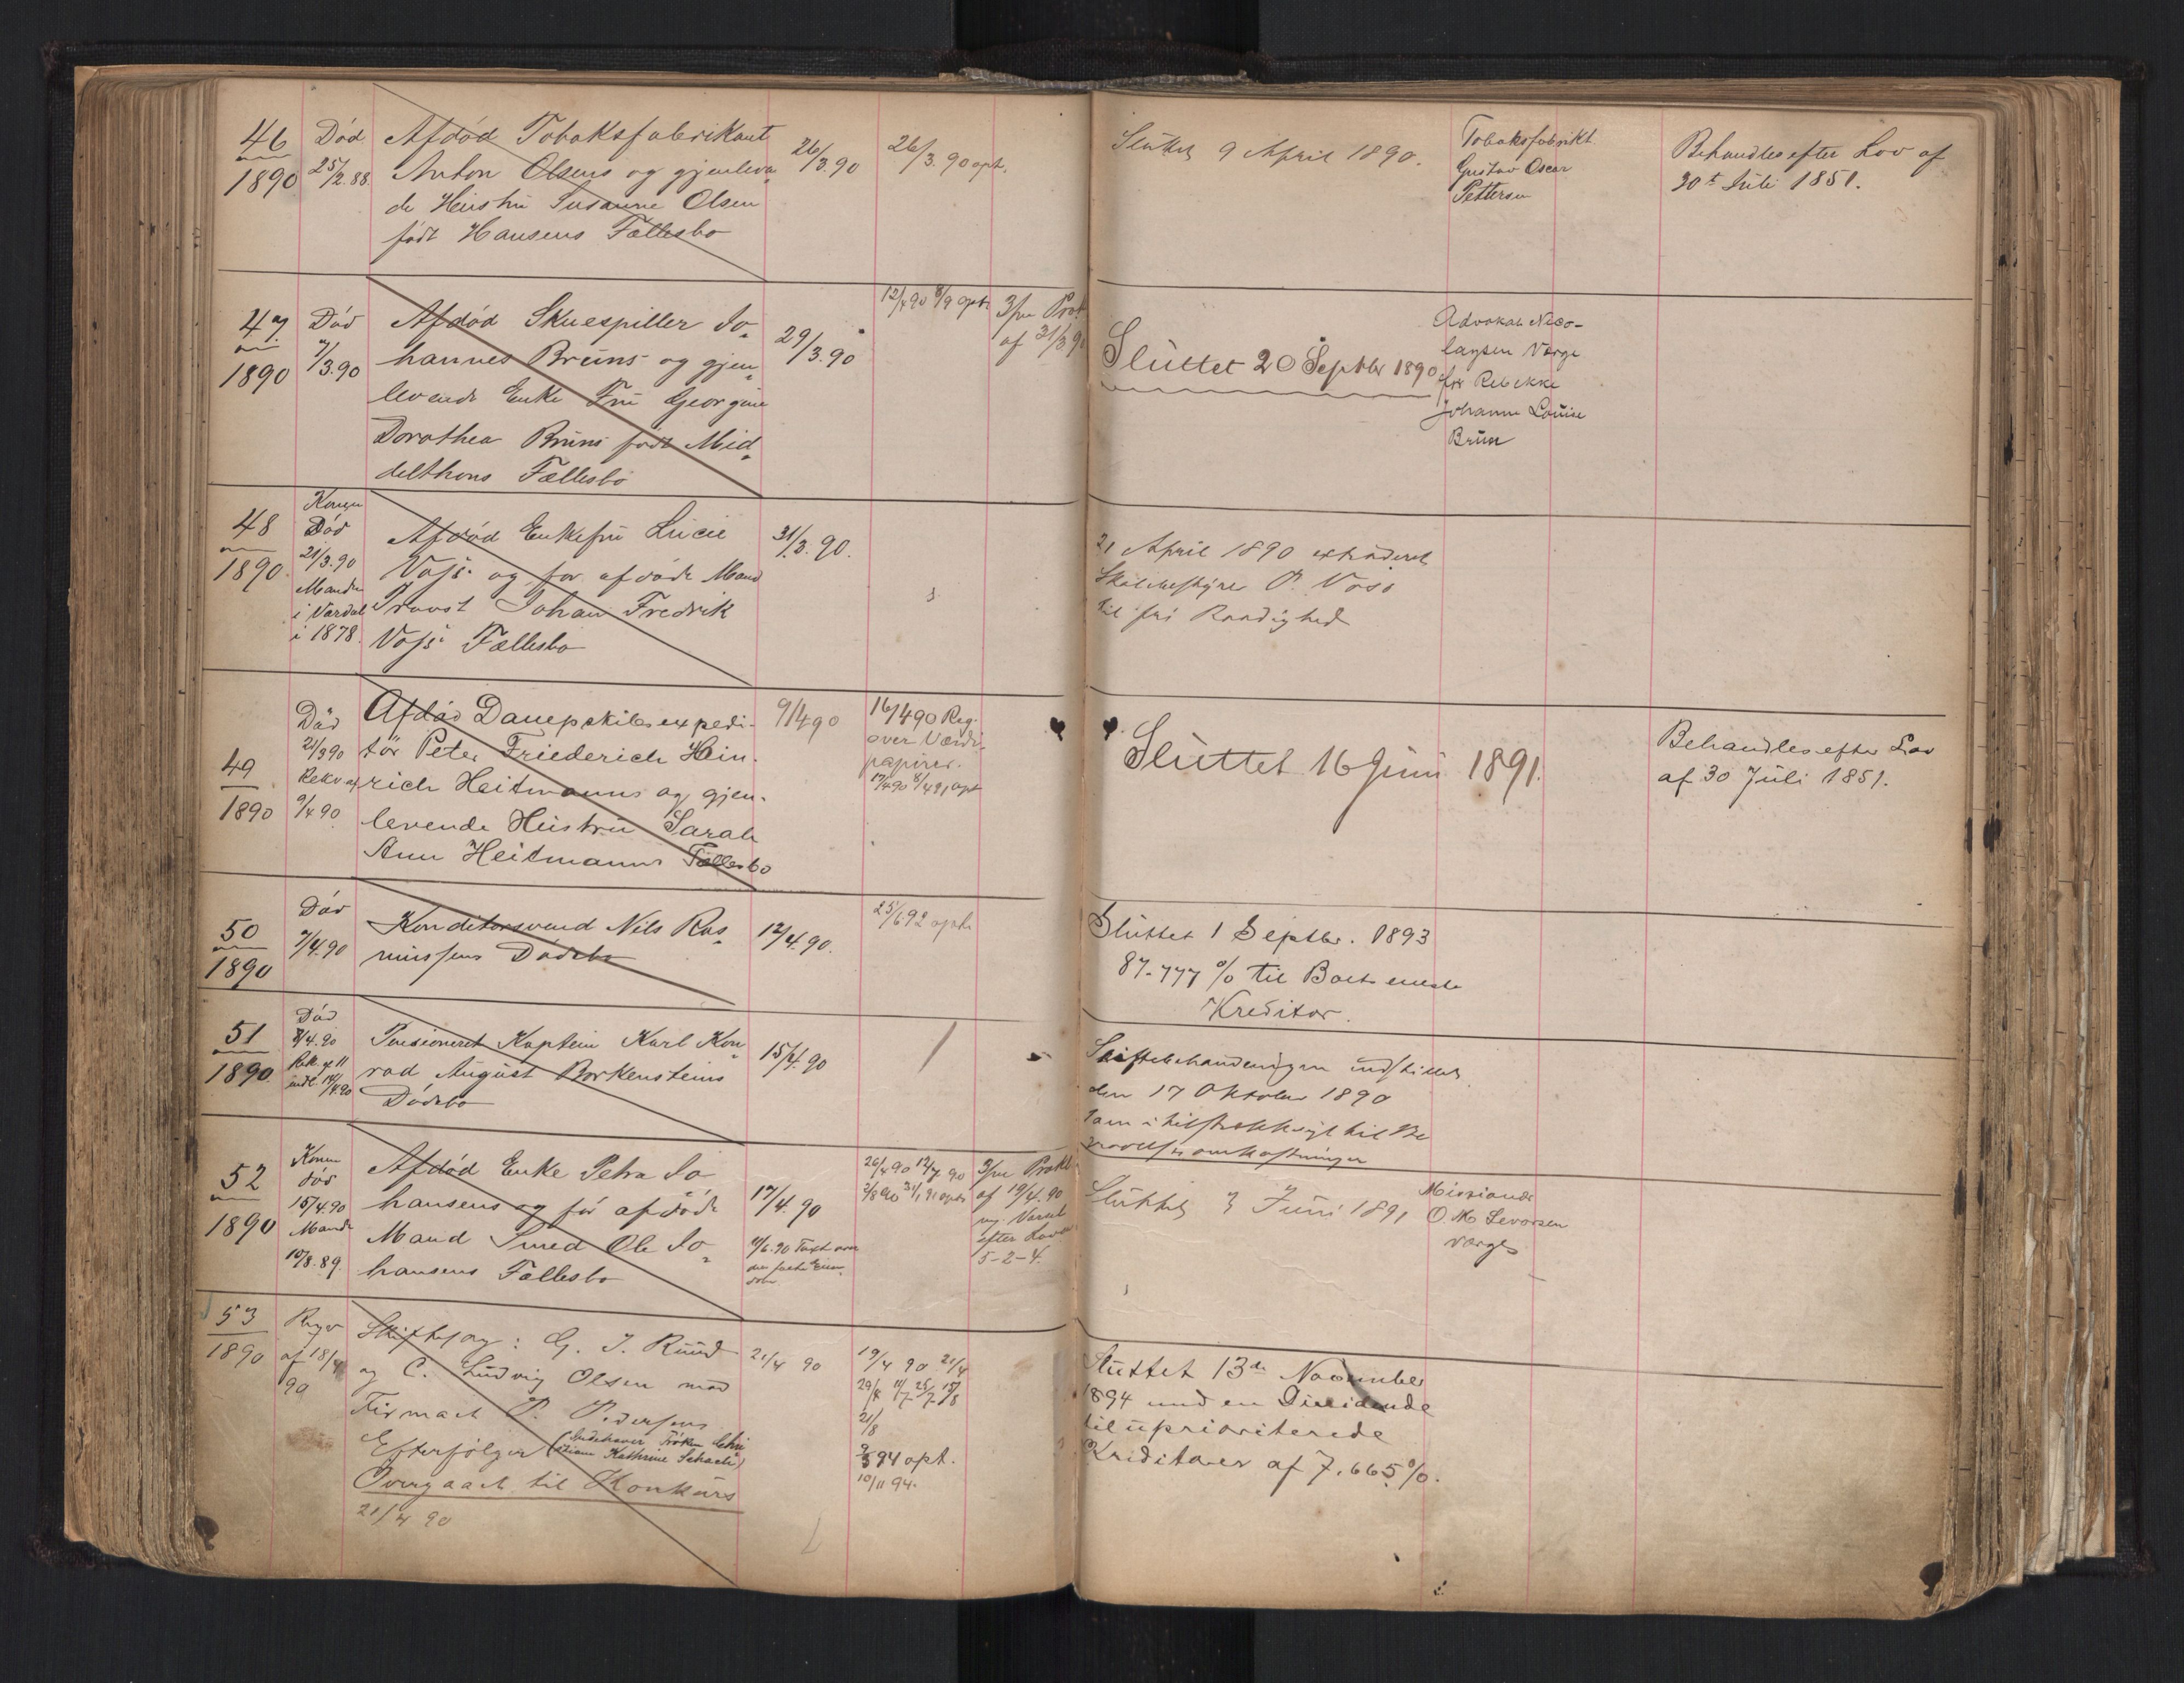 46
1890
Död
25/2.88.
Afdöd Tobaksfabrikant
Anton Olsens og gjenleven
de Hustru Susanne Olsen
født Hansens Fællesbo
26/3.90
26/3.90 opt.
Sluttet 9 April 1890.
Tobaksfabrikt
Gustav Oscar
Pettersen
Behandles efter Lov af
30te Juli 1851.
47
1890
Död
7/3.90
Afdöd Skuespiller Jo-
hannes Bruns og gjen-
levende Enke Fru Georgine
Dorothea Bruns født Mid-
delthons Fællesbo
29/3.90
12/4 90 8/9 opt.
3/m Prok
af 31/3 90
Sluttet 20 Septbr 1890
Advokat Nico-
laysen Værge
for Rebekka
Johanne Louise
Brun
48
1890.
Konen
Död
21/3.90
Manden
i Vardal
i 1878.
Afdöd Enkefru Lucie
Voss og før afdöde Mand
Provst Johan Fredrik
Voss Fællesbo
31/3.90.
21 April 1890 extraderet
Skolebestyrer P. Voss
til fri Raadighed
49
1890
Död
21/3 90
Rekv af
9/4 90
Afdöd Dampskibsexpedi-
tör Peter Friederich Hein-
rich Heitmanns og gjen-
levende Hustru Sarah
Ann Heitmanns Fællesbo
9/4 90
16/4 90 Reg.
over Værdi-
papirer.
17/4 90 8/4 91 opt
Sluttet 16 Juni 1891.
Behandles efter Lov
af 30 Juli 1851.
50
1890
Död
7/4.90
Konditorsvend Nils Ras-
mussens Dödsbo
12/4.90.
25/6 92 opt.
Sluttet 1 Septbr. 1893
87.777 % til Boets eneste
Kreditor.
51
1890.
Död
8/4.90
Rek. af 11
indl. 14/4.90
Pensioneret Kaptein Karl Kon-
rad August Borkensteins
Dödsbo
15/4.90
Skiftebehandlingen indstillet
den 17 Oktober 1890
som utilstrækkeligt til Be
gravelsesomkostninger
52
1890
Konen
död
15/4.90
Manden
10/8.89.
Afdöd Enke Petra Jo
hansens og för afdöde
Mand Smed Ole Jo-
hansens Fællesbo
17/4.90
11/6.90 Taxt over
den faste Eien-
dom.
26/4 90 12/7 90
2/8 90 31/1 91 opt
3/m Prokl
af 19/4.90
m. Varsel
efter Loven
5-2-4.
Sluttet 3 Juni 1891
O. M. Levorsen
Værge
53
1890
af 18/4
90
Skiftesag: G. J. Ruud
og C. Ludvig Olsen mod
Firmaet P. Pedersens
Efterfölger (Indehaver Fröken Chri
stiane Kathrine Schach)
Overgaaet til Konkurs
21/4 90
21/4 90
19/4 90 21/4
29/4 11/7 25/7 15/8
21/8
9/3 94 opt.
10/11 94.
Sluttet 13de November
1894 med en Dividende
til uprioriterede
Kreditorer af 7.665 %.